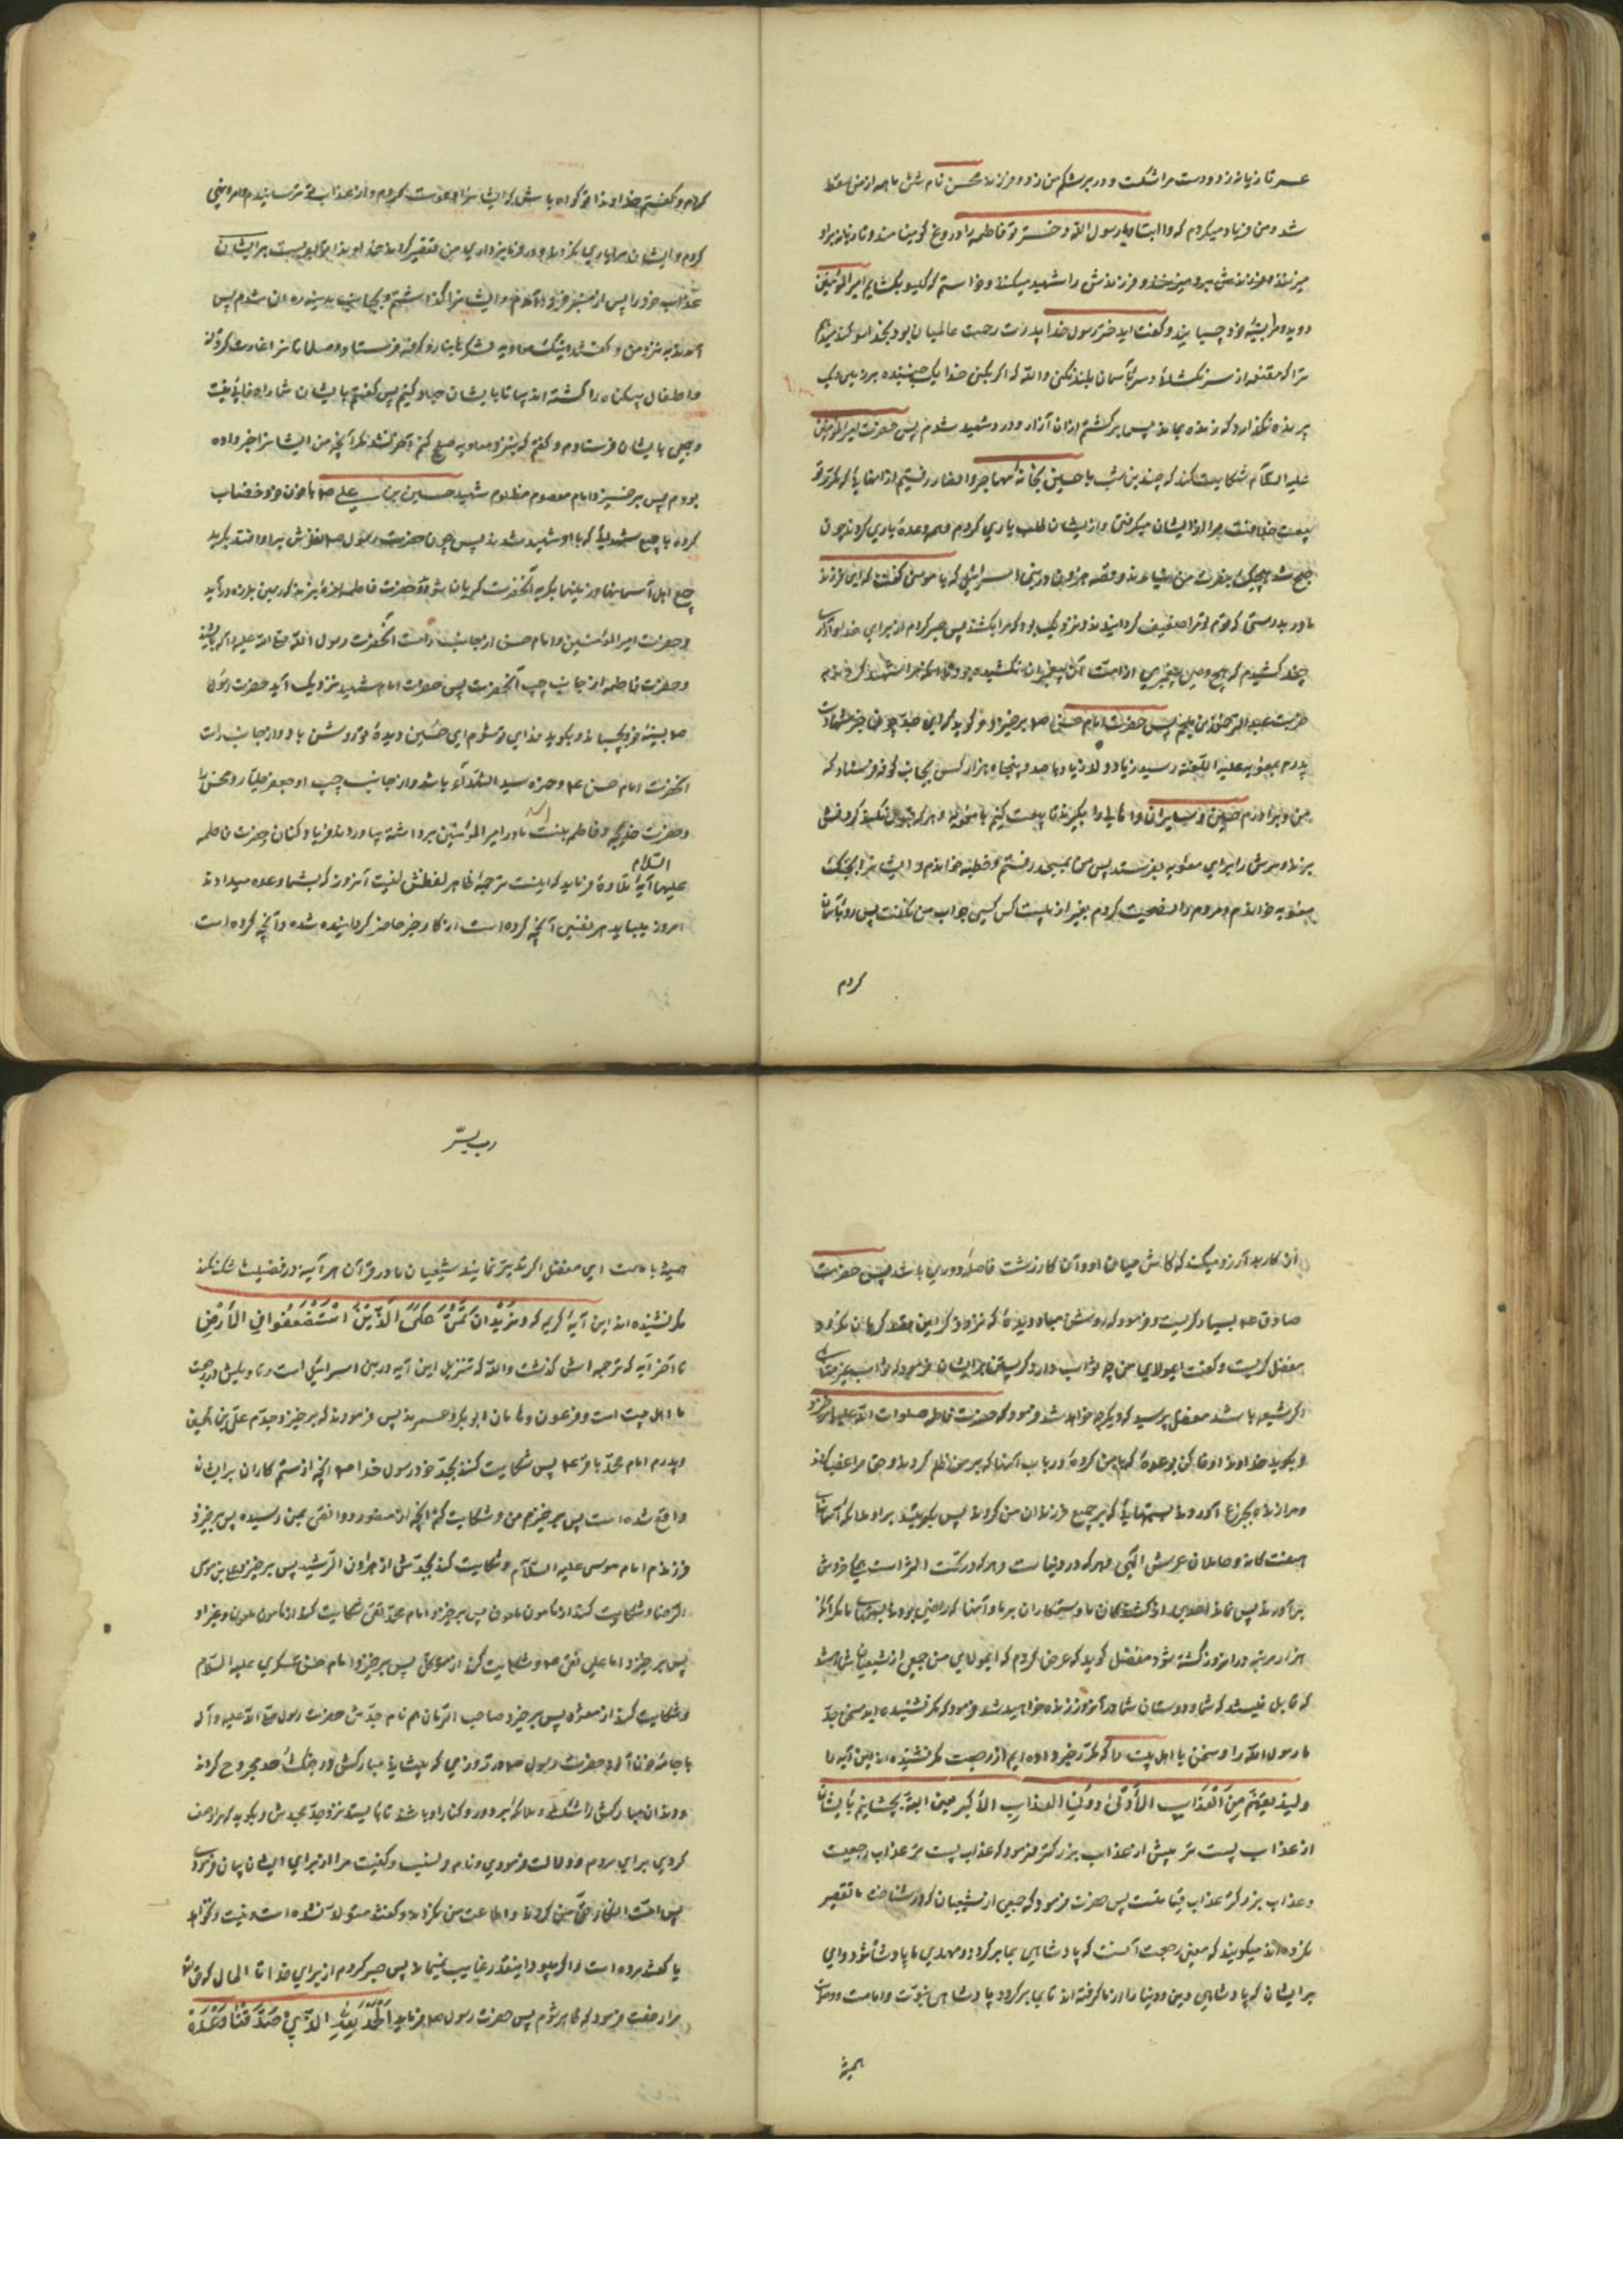 عمر تازیانه زد و دست مرا شکست و در بر شکم من زد و فرزند محسن نام شش ماهه از من سقط
شد و من فریاد میکردم که وا ابتاه یا رسول الله دختر تو فاطمه را دروغ گو مینامند و تازیانه بر او
میزنند و فرزندش را شهید میکنند و خواستم که گیسو بگشایم امیر المؤمنین
دوید و مرا بسینه خود چسبانید و گفت ای دختر رسول خدا پدرت رحمت عالمیان بود بخدا سوگند میدهم
ترا که مقنعه از سر نکشائی و سر بآسمان بلند نکنی والله که اگر بکنی خدا یک جنبنده بر زمین و یک
پرنده نگذارد که زنده بماند پس برگشتم و از آن آزار و درد شهید شدم پس حضرت امیر المؤمنین
علیه السلام شکایت کند که چندین شب با حسین بخانه مهاجر و انصار رفتیم از آنهائی که مکرر تو
بیعت خلافت مرا از ایشان میکرفتی و از ایشان طلب یاری کردم و همه وعده یاری کردند چون
صبح شد هیچیک بنصرت من نیامدند و قصه هرون در بنی اسرائیل که با موسی گفت که ای فرزند
مادر بدرستی که قوم تو مرا ضعیف گردانیدند و نزدیک بود که مرا بکشند پس صبر کردم از برای خدا و آزاری
چند کشیدم که هیچ وصی پیغمبری از امت آن پیغمبران نکشیده بود تا آنکه مرا شهید کردند به
ضربت عبد الرحمن بن ملجم پس حضرت امام حسن صه برخیزد و گوید که ای جد چون خبر شهادت
پدرم بمعویه علیه اللعنه رسید زیاد ولد زنا را با صد و پنجاه هزار کس بجانب کوفه فرستاد که
من و برادرم حسین و سایران و اهالی را بگیرند تا بیعت کنیم با معویه و هر که قبول نکند گردنش
بزند و سرش را برای معویه بفرستد پس من بمسجد رفتم و خطبه خواندم و ایشانرا بجنگ
معویه خواندم و مردم را نصیحت کردم بغیر از بیست کس کسی جواب من نگفت پس رو بآسمان
کردم
کردم و گفتم خداوندا تو گواه باش که ایشانرا دعوت کردم و از عذاب تو ترسانیدم و امر و نهی
کردم و ایشان مرا یاری نکردند و در فرمانبرداری من تقصیر کردند خداوندا تو بفرست بر ایشان
عذاب خود را پس از منبر فرود آمدم و ایشانرا گذاشتم و بجانب مدینه روان شدم پس
آمدند به نزد من و گفتند اینک معاویه لشکر بانبار و کوفه فرستاد و مسلمانانرا غارت کردند
و اطفال بیگناه را کشته اند بیا تا با ایشان جهاد کنیم پس گفتم بایشان شما را وفائی نیست
و جمعی با ایشان فرستادم و گفتم که بنزد معاویه صلح کنم آخر نشد مگر آنچه من ایشانرا خبر داده
بودم پس برخیزد امام معصوم مظلوم شهید حسین بن علی صه با خون خود خضاب
کرده با جمیع شهدائی که با او شهید شدند پس چون حضرت رسول صه نظرش بر او افتد بگرید
و جمیع اهل آسمانها و زمینها بگریه آنحضرت گریان شوند و حضرت فاطمه نعره بزند که زمین بلرزه در آید
و حضرت امیر المؤمنین و امام حسن از جانب راست آنحضرت رسول الله صلی الله علیه و آله بایستند
و حضرت فاطمه از جانب چپ آنحضرت پس حضرت امام شهید نزدیک آید حضرت رسول
صه بسینه خود بچسباند و بگوید فدای تو شوم ای حسین دیده تو روشن باد و از جانب راست
آنحضرت امام حسن ۴ و حمزه سید الشهدآء باشد و از جانب چپ او جعفر طیار و محسن را
و حضرت خدیجه و فاطمه بنت اسد مادر امیر المؤمنین برداشته بیاورند فریاد کنان و حضرت فاطمه
علیها السلام آیه تلاوة فرماید که اینست ترجمه ظاهر لفظش اینست آنروز که بشما وعده میدادند
امروز بیابد هر نفسی آنچه کرده است از کار خیر حاضر گردانیده شده و آنچه کرده است
از کار بد آرزو میکند که کاش میان او و آن کار زشت فاصله دوری باشد پس حضرت
صادق صه بسیار گریست و فرمود که روشن مباد دیده که نزد ذکر این قصه گریان نگردد
مفضل گریست و گفت ای مولای من چه ثواب دارد گریستن بر ایشان فرمود که ثواب غیر متناهی
اگر شیعه باشد مفضل پرسید که دیگر چه خواهد شد فرمود که حضرت فاطمه صلوات الله علیها برخیزد
و بگوید خداوندا وفا کن بوعده که با من کرده در باب آنها که بر من ظلم کردند و حق مرا غصب کردند
و مرا زدند و بجزع آوردند بستمهائی که بر جمیع فرزندان من کردند پس بگریند بر او ملائکه آسمانهای
هفتگانه و حاملان عرش الهی و هر که در دنیاست و هر که در تحت الثری است همه خروش
برآورند پس نماند احدی از کشندگان ما و ستمکاران بر ما و آنها که راضی بودند بستمهای ما مگر آنکه
هزار مرتبه در آنروز کشته شود مفضل گوید که عرض کردم که ای مولای من جمعی از شیعیان شما هستند
که قایل نیستند که شما و دوستان شما در آنروز زنده خواهید شد فرمود که مگر نشنیده اید سخن جد
ما رسول الله را و سخن ما اهل بیت را که مکرر خبر داده ایم از رجعت مگر نشنیده اند این آیه را
ولنذیقنهم من العذاب الأدنی دون العذاب الأکبر یعنی البته بچشانیم بایشان
از عذاب پست تر پیش از عذاب بزرگتر فرمود که عذاب پست تر عذاب رجعت
و عذاب بزرگتر عذاب قیامتست پس حضرت فرمود که جمعی از شیعیان که در شناخت ما تقصیر
نکرده اند میگویند که معنی رجعت آنست که پادشاهی بما برگردد و مهدی ما پادشاه شود وای
بر ایشان که پادشاهی دین و دنیا را از ما گرفته اند تا بما برگردد پادشاهی نبوت و امامت و وصایت
همیشه
رب یسر
همیشه با ماست ای مفضل اگر تدبر نمایند شیعیان ما در قرآن هر آینه در فضیلت ما شک نکنند
مگر نشنیده اند این آیه کریمه که و نرید ان نمن علی الذین استضعفوا فی الارض
تا آخر آیه که ترجمه اش گذشت والله که تنزیل این آیه در بنی اسرائیل است و تاویلش در رجعت
ما اهل بیت است و فرعون و هامان ابو بکر و عمرند پس فرمودند که برخیزد جدم علی بن الحسین
و پدرم امام محمد باقر ۴ پس شکایت کنند بجد خود رسول خدا صه آنچه از ستم کاران بر ایشان
واقع شده است پس برخیزم من و شکایت کنم آنچه از منصور دوانقی بمن رسیده پس برخیزد
فرزندم امام موسی علیه السلام و شکایت کند بجدش از هارون الرشید پس برخیزد علی بن موسی
الرضا و شکایت کند از مامون ملعون پس برخیزد امام محمد تقی شکایت کند از مامون ملعون و غیر او
پس برخیزد امام علی نقی صه و شکایت کند از متوکل پس برخیزد امام حسن عسکری علیه السلام
و شکایت کند از معتز پس برخیزد صاحب الزمان هم نام جدش حضرت رسول صلی الله علیه و آله
با جامه خون آلود حضرت رسول صه در روزی که پیشانی مبارکش در جنگ احد مجروح کردند
و دندان مبارکش را شکستند و ملائکه بر دور و کنار او باشند تا بایستد نزد جد مجیدش و بگوید که مرا وصف
کردی برای مردم و دلالت فرمودی و نام و نسب و کنیت مرا از برای ایشان بیان فرمودی
پس امت انکار حق من کردند و اطاعت من نکردند و گفتند متولد نشده است و نیست و نخواهد
یا گفتند مرده است و اگر میبود اینقدر غایب نمیماند پس صبر کردم از برای خدا تا الحال که حق تعالی
مرا رخصت فرمود که ظاهر شوم پس حضرت رسول صه فرماید الحمد لله الذی صدقنا وعده